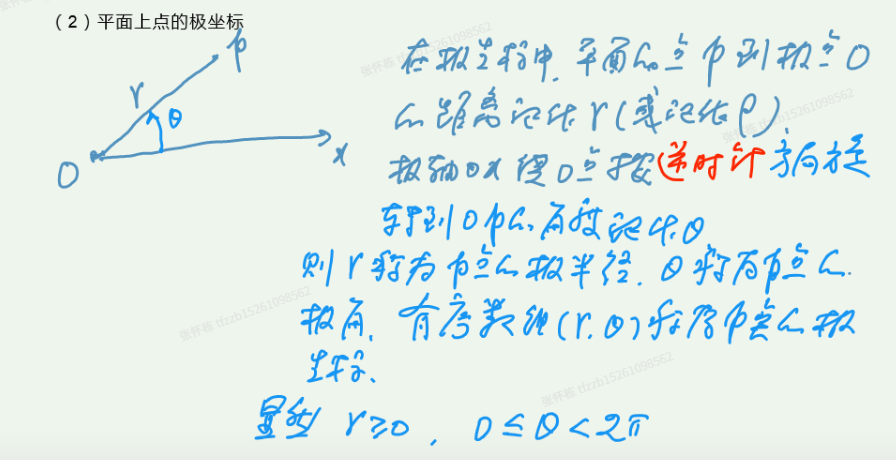 （2）平面上点的极坐标
P
r
θ
O
x
在极坐标中，平面的点P到极点O
的距离记作r（或记作ρ）
极轴Ox绕O点按逆时针方向旋
转到OP的角度记作θ
则r称为P点的极半径．θ称为P点的
极角．有序数组（r，θ）称为P点的极
坐标．
显然 r≥0，0≤θ<2π
张怀栋 tfzzb15261098562
张怀栋 tfzzb15261098562
张怀栋 tfzzb15261098562
张怀栋 tfzzb15261098562